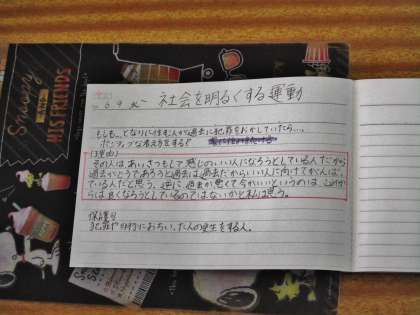 Snoopy
AND
HIS FRIENDS
社会を明るくする運動
もしも、となりに住む人が過去に犯罪をおかしていたら…、
ポジティブな考え方をする!
(理由)
その人は、あいさつもして感じのいい人になろうとしている人だから
過去がどうであろうと過去は過去だからいい人に向けてがんばっ
ている人だと思う。逆に過去が悪くて今がいいというのは、これか
らは良くなろうとしているのではないかと私は思う。
保護司
犯罪や非行におちいった人の更生をする人。